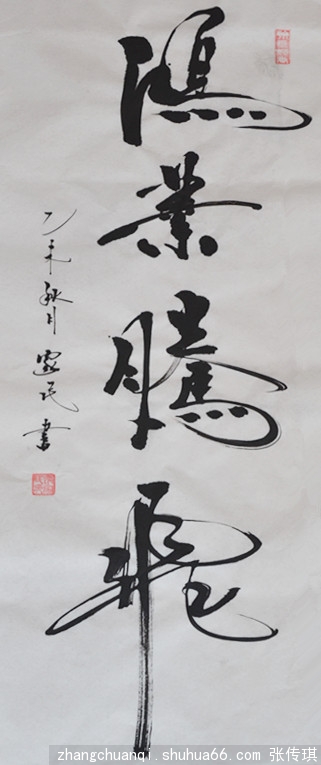 鴻業騰飛
乙未秋月
民書
zhangchuanqi.shuhua66.com 张传琪